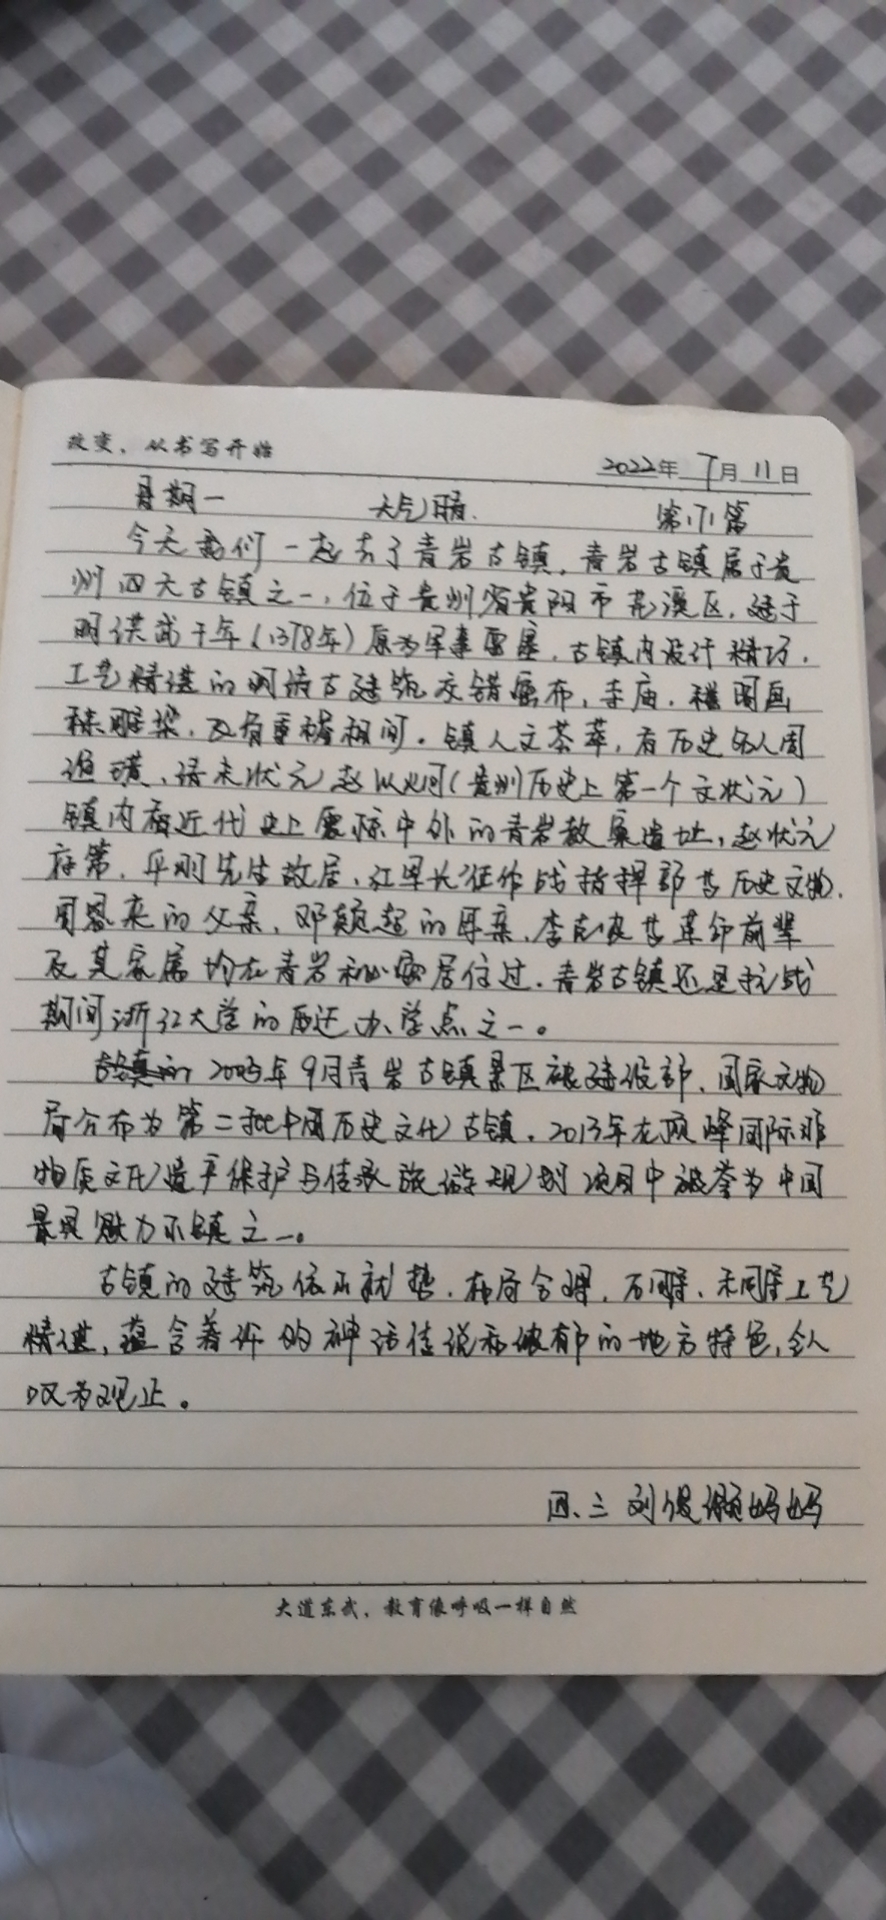 改变，从书写开始
2022年 7月 11日
星期一 天气晴. 第171篇
今天我们一起去了青岩古镇，青岩古镇属于贵
州四大古镇之一，位于贵州省贵阳市花溪区，建于
明洪武十年（1378年）原为军事要塞，古镇内设计精巧，
工艺精湛的明清古建筑交错密布，寺庙，楼阁画
栋雕梁，飞角重檐相间。镇人文荟萃，有历史名人周
渔璜、清末状元赵以炯（贵州历史上第一个文状元）
镇内有近代史上震惊中外的青岩教案遗址，赵状元
府第，平刚先生故居，红军长征作战指挥部等历史文物，
周恩来的父亲，邓颖超的母亲，李克农等革命前辈
及其家属均在青岩秘密居住过，青岩古镇还是抗战
期间浙江大学的西迁办学点之一。
2005年9月青岩古镇景区被建设部、国家文物
局公布为第二批中国历史文化古镇，2013年在顶峰国际非
物质文化遗产保护与传承旅游规划项目中被誉为中国
最具魅力小镇之一。
古镇的建筑依山就势，布局合理，石雕、木雕工艺
精湛，蕴含着许的神话传说和浓郁的地方特色，令人
叹为观止。
四、三 刘俊颜妈妈
大道东武，教育像呼吸一样自然